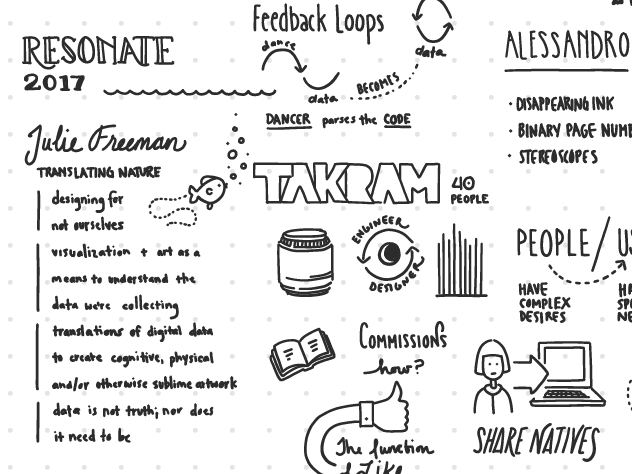 RESONATE
2017
Julie Freeman
TRANSLATING NATURE
designing for
not ourselves
visualization + art as a
means to understand the
data we're collecting
translations of digital data
to create cognitive, physical
and/or otherwise sublime artwork
data is not truth; nor does
it need to be
Feedback Loops
dance
data
BECOMES
data
DANCER parses the CODE
TAKRAM
40
PEOPLE
ENGINEER
DESIGNER
COMMISSIONS
how?
The function
of Like
ALESSANDRO
· DISAPPEARING INK
· BINARY PAGE NUMB
· STEREOSCOPES
PEOPLE/US
HAVE
COMPLEX
DESIRES
HA
SP
NE
SHARE NATIVES